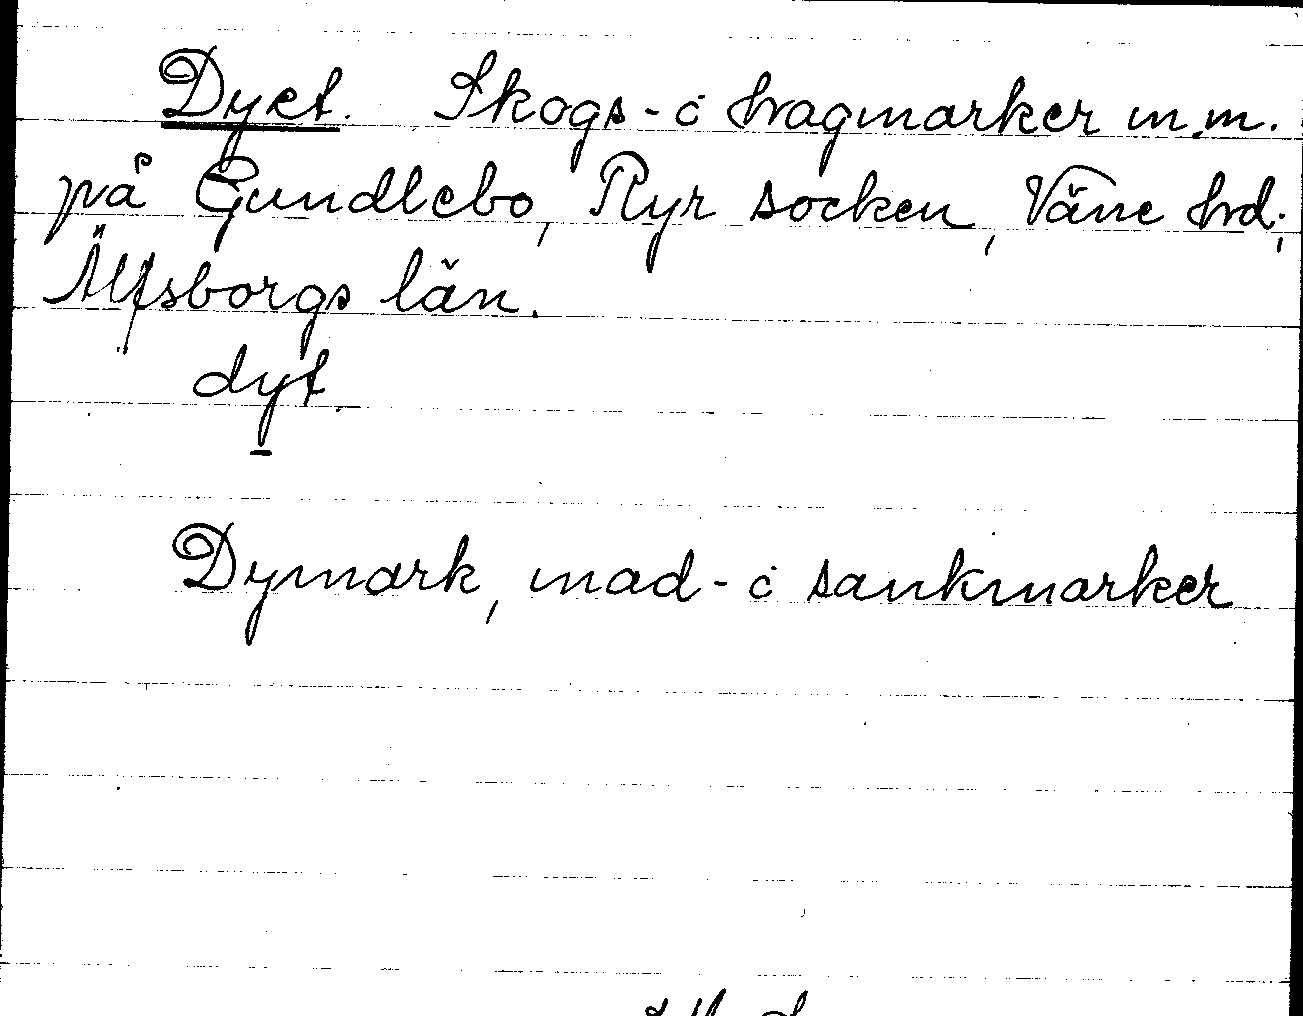 Dyet. Skogs- o hagmarker m.m.
på Gundlebo, Ryr socken, Väne hrd;
Älfsborgs län.
dyt
Dymark, mad- o sankmarker